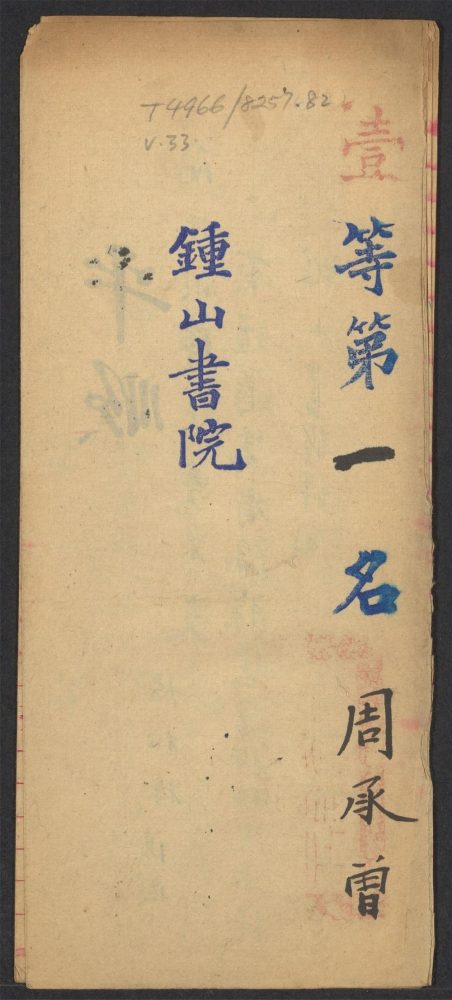 T4966/8257.82
v.33
壹等第一名周承曾
鍾山書院